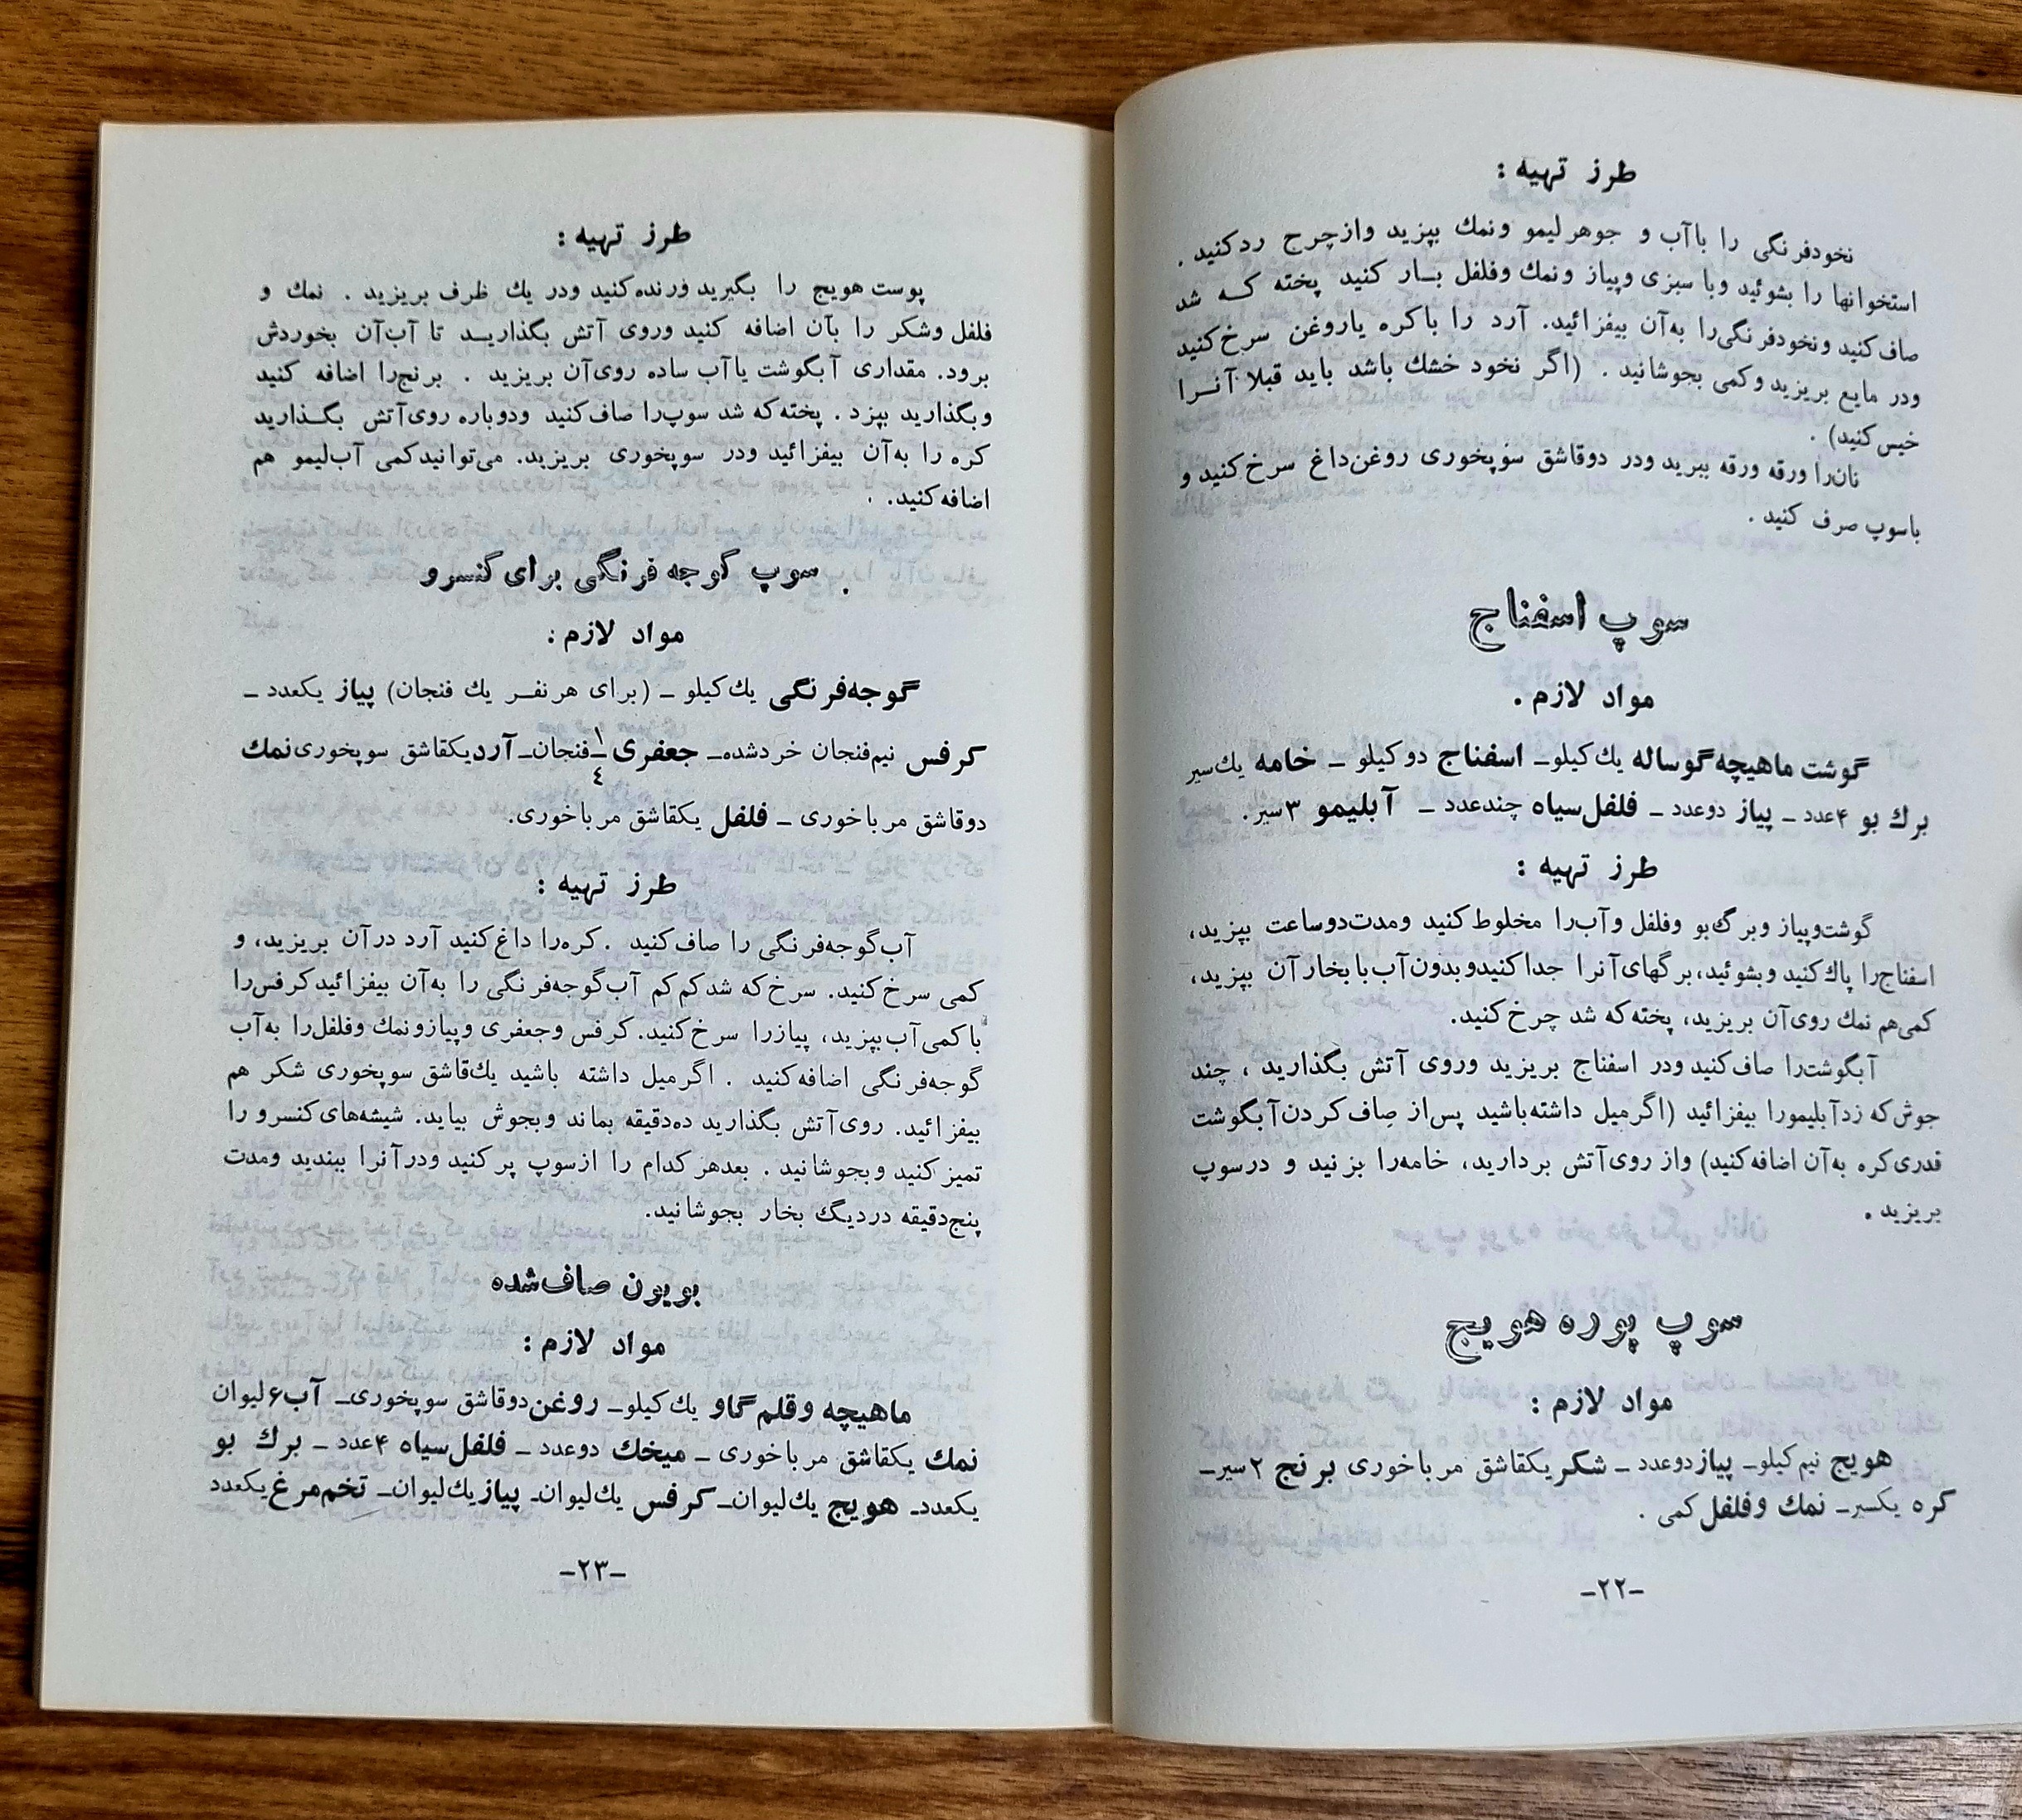 طرز تهیه :
نخودفرنگی را باآب و جوهرلیمو ونمك بپزید وازچرخ ردكنید .
استخوانها را بشوئید وبا سبزی وپیاز ونمك وفلفل بـار كنید پخته كـه شد
صاف‌كنید ونخودفرنگی‌را به‌آن بیفزائید. آرد را باكره یاروغن سرخ‌كنید
ودر مایع بریزید وكمی بجوشانید . (اگر نخود خشك باشد باید قبلا آنـرا
خیس‌كنید) .
نان‌را ورقه ورقه ببرید ودر دوقاشق سوپخوری روغن‌داغ سرخ‌كنید و
باسوپ صرف كنید .
سوپ اسفناج
مواد لازم .
گوشت ماهیچه‌گوساله یك‌كیلو_ اسفناج دوكیلو _ خامه یك‌سیر
برك بو ۴عدد _ پیاز دوعدد _ فلفل‌سیاه چندعدد _ آبلیمو ۳سیر.
طرز تهیه :
گوشت‌وپیاز وبرگ‌بو وفلفل وآب‌را مخلوط‌كنید ومدت‌دوساعت بپزید،
اسفناج‌را پاك‌كنید وبشوئید، برگهای‌آنرا جداكنیدوبدون‌آب‌بابخارآن بپزید،
كمی‌هم نمك روی‌آن بریزید، پخته‌كه شد چرخ‌كنید.
آبگوشت‌را صاف‌كنید ودر اسفناج بریزید وروی آتش بگذارید ، چند
جوش‌كه زدآبلیمورا بیفزائید (اگرمیل داشته‌باشید پس‌از صاف‌كردن‌آبگوشت
قدری‌كره به‌آن اضافه‌كنید) واز روی‌آتش بردارید، خامه‌را بزنید و درسوپ
بریزید .
سوپ پوره هویج
مواد لازم :
هویج نیم‌كیلو_ پیازدوعدد _ شكریكقاشق مرباخوری برنج ۲سیر_
كره یكسیر_ نمك وفلفل‌كمی .
_۲۲_
طرز تهیه :
پوست هویج را بگیرید ورنده‌كنید ودر یك ظرف بریزید . نمك و
فلفل وشكر را بآن اضافه كنید وروی آتش بگذاریـد تا آب‌آن بخوردش
برود. مقداری آبگوشت یاآب ساده روی‌آن بریزید . برنج‌را اضافه كنید
وبگذارید بپزد . پخته‌كه شد سوپ‌را صاف‌كنید ودوباره روی‌آتش بگـذارید
كره را به‌آن بیفزائید ودر سوپخوری بریزید. می‌توانیدكمی آب‌لیمو هم
اضافه‌كنید.
سوپ گوجه فرنگی برای كنسرو
مواد لازم :
گوجه‌فرنگی یك‌كیلو _ (برای هرنفـر یك فنجان) پیاز یكعدد _
كرفس نیم‌فنجان خردشده_ جعفری ۱/۴فنجان_آردیكقاشق سوپخوری‌نمك
دوقاشق مرباخوری _ فلفل یكقاشق مرباخوری.
طرز تهیه :
آب‌گوجه‌فرنگی را صاف‌كنید . كره‌را داغ‌كنید آرد درآن بریزید، و
كمی سرخ‌كنید. سرخ‌كه شدكم‌كم آب‌گوجه‌فرنگی را به‌آن بیفزائیدكرفس‌را
باكمی‌آب‌بپزید، پیازرا سرخ‌كنید. كرفس وجعفری وپیازونمك وفلفل‌را به‌آب
گوجه‌فرنگی اضافه‌كنید . اگرمیل داشته باشید یك‌قاشق سوپخوری شكر هم
بیفزائید. روی‌آتش بگذارید ده‌دقیقه بماند وبجوش بیاید. شیشه‌های‌كنسرو را
تمیزكنید وبجوشانید . بعدهركدام را ازسوپ پركنید ودرآنرا ببندید ومدت
پنج‌دقیقه دردیگ بخار بجوشانید.
بویون صاف‌شده
مواد لازم :
ماهیچه وقلم‌گاو یك‌كیلو_ روغن‌دوقاشق سوپخوری_ آب۶لیوان
نمك یكقاشق مرباخوری _ میخك دوعدد _ فلفل‌سیاه ۴عدد _ برك بو
یكعدد_ هویج یك‌لیوان_كرفس یك‌لیوان_ پیازیك‌لیوان_ تخم‌مرغ‌یكعدد
_۲۳_